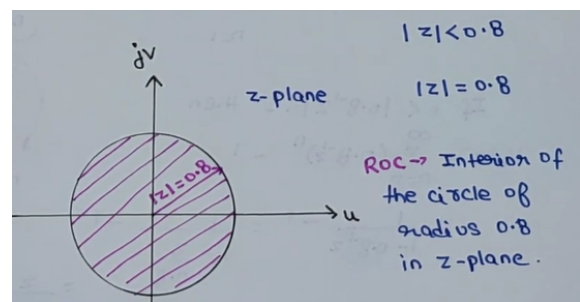 jv
z-plane
|z|=0.8
u
|z|<0.8
|z|=0.8
ROC→ Interior of
the circle of
radius 0.8
in z-plane.